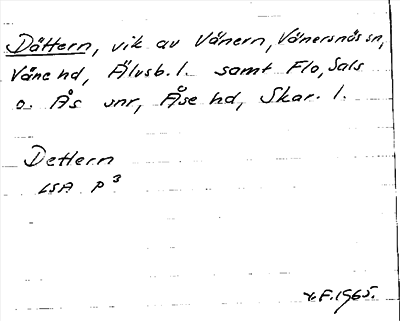 Dättern, vik av Vänern, Vänersnäs sn,
Väne hd, Älvsb. l. samt Flo, Sals
o. Ås snr, Åse hd, Skar. l.
Detlern
LSA P³
F. 1965.